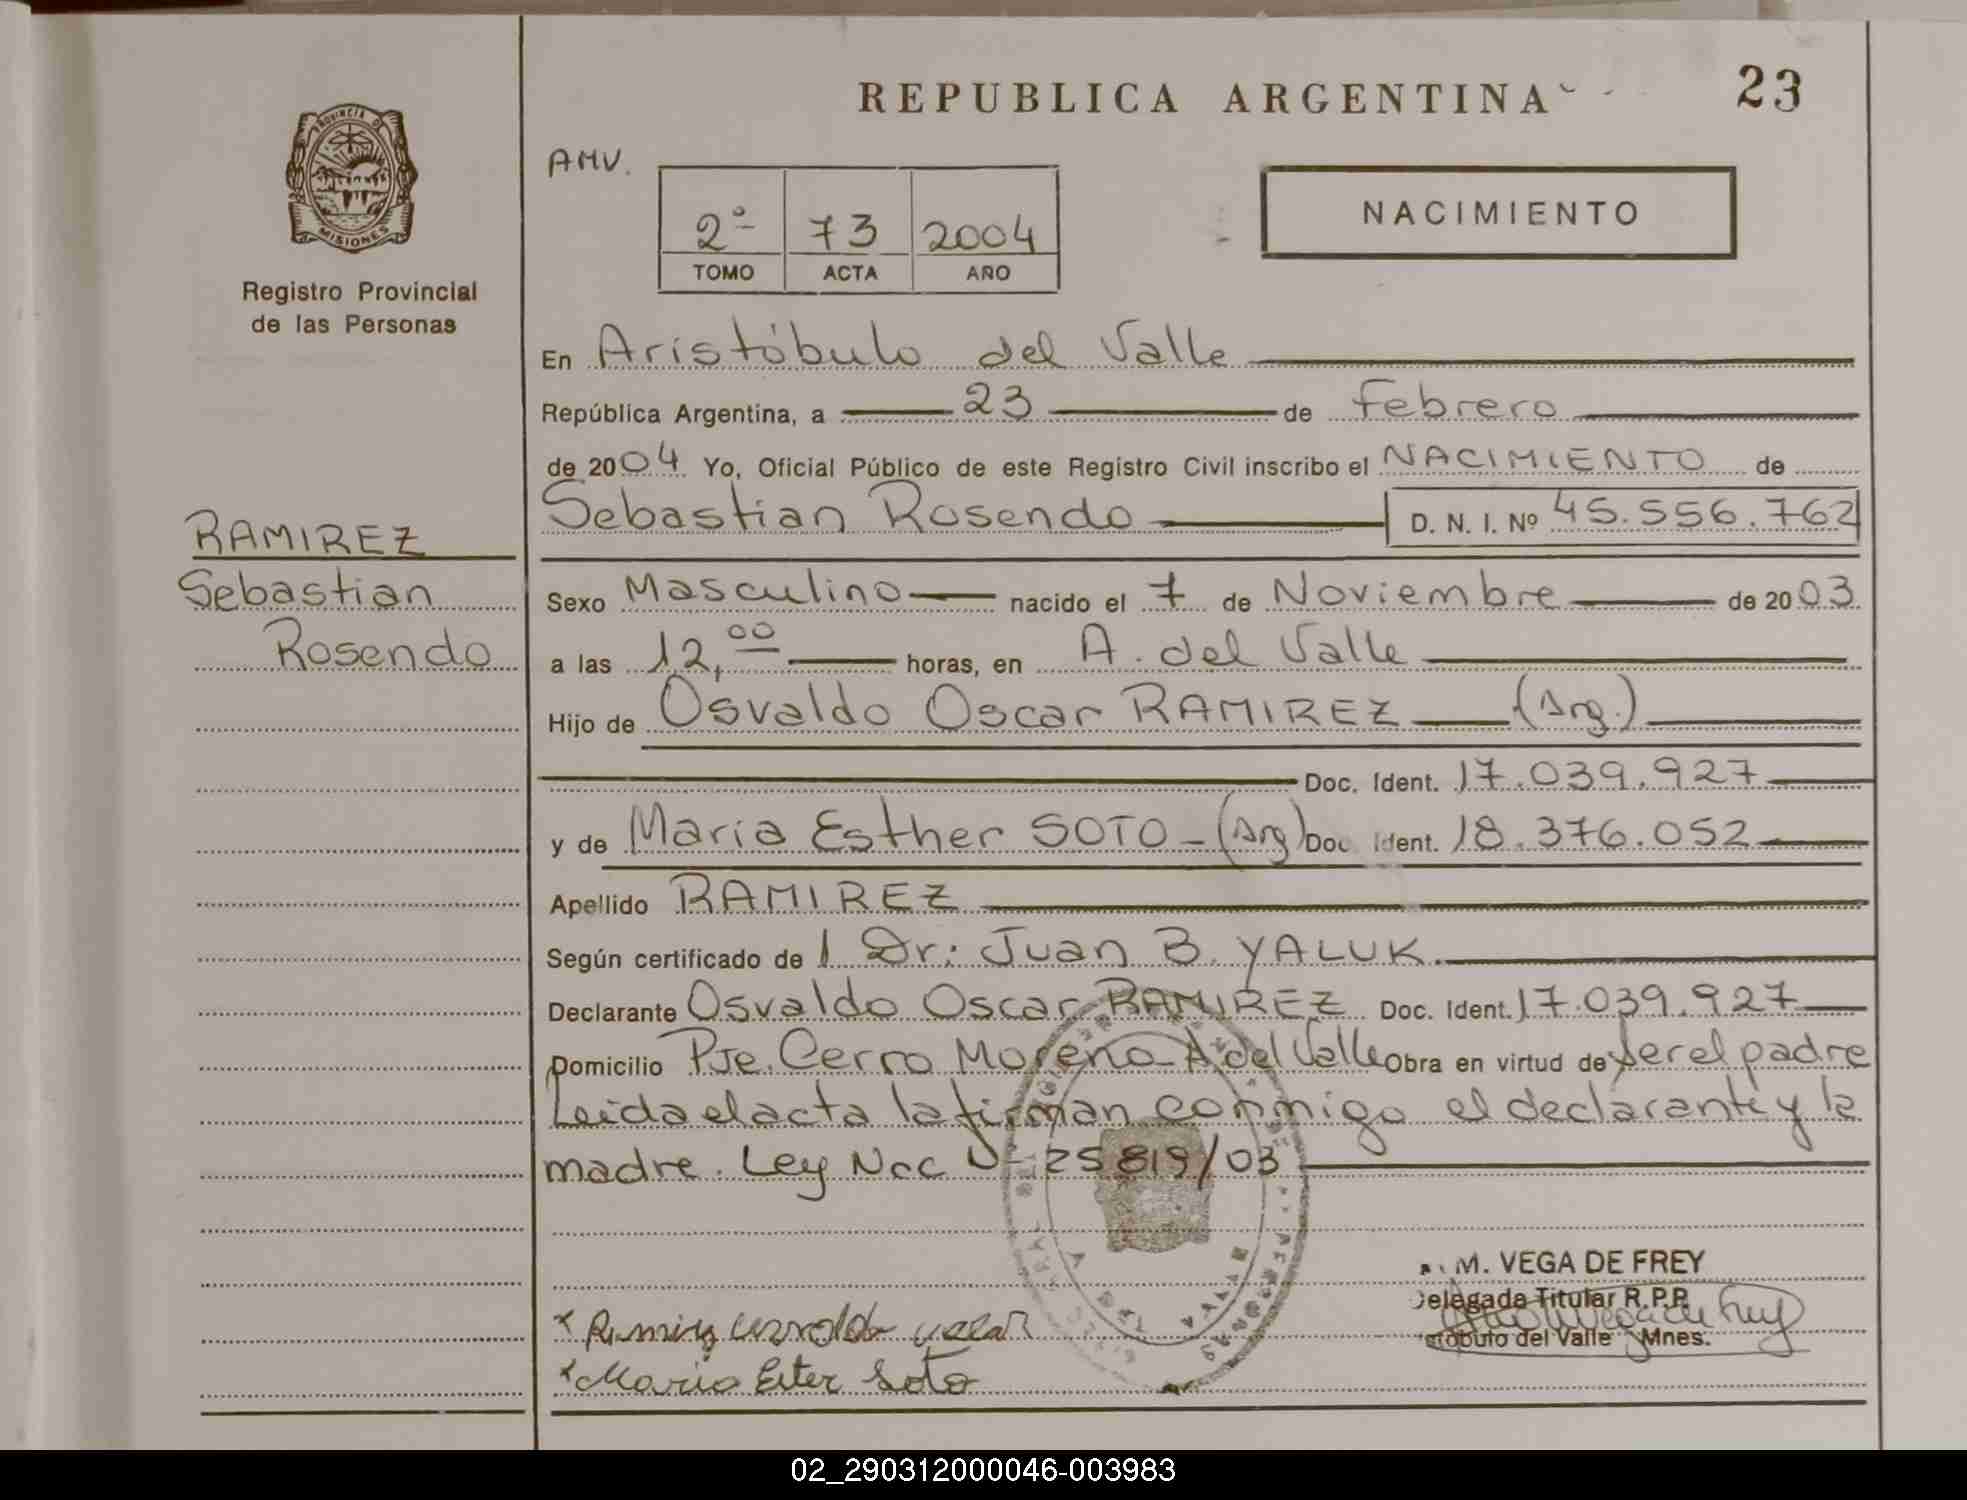 REPUBLICA ARGENTINA
23
PROVINCIA DE
MISIONES
Registro Provincial
de las Personas
AMV.
2º 73 2004
TOMO ACTA AÑO
NACIMIENTO
En Aristóbulo del Valle
República Argentina, a 23 de Febrero
de 2004 Yo, Oficial Público de este Registro Civil inscribo el NACIMIENTO de
Sebastian Rosendo D. N. I. Nº 45.556.762
RAMIREZ
Sebastian
Rosendo
Sexo Masculino nacido el 7 de Noviembre de 2003.
a las 12,00 horas, en A. del Valle
Hijo de Osvaldo Oscar RAMIREZ (Arg.)
Doc. Ident. 17.039.927
y de Maria Esther SOTO - (Arg) Doc Ident. 18.376.052
Apellido RAMIREZ
Según certificado de l Dr: Juan B. YALUK.
Declarante Osvaldo Oscar RAMIREZ Doc. Ident. 17.039.927
Domicilio Pje. Cerro Moreno - A del Valle Obra en virtud de ser el padre
Leida el acta la firman conmigo el declarante y la
madre. Ley Nac 25819/03
M. VEGA DE FREY
Delegada Titular R.P.P.
stóbulo del Valle Mnes.
x Ramirez osvaldo oscar
x Maria Ester Soto
02_290312000046-003983